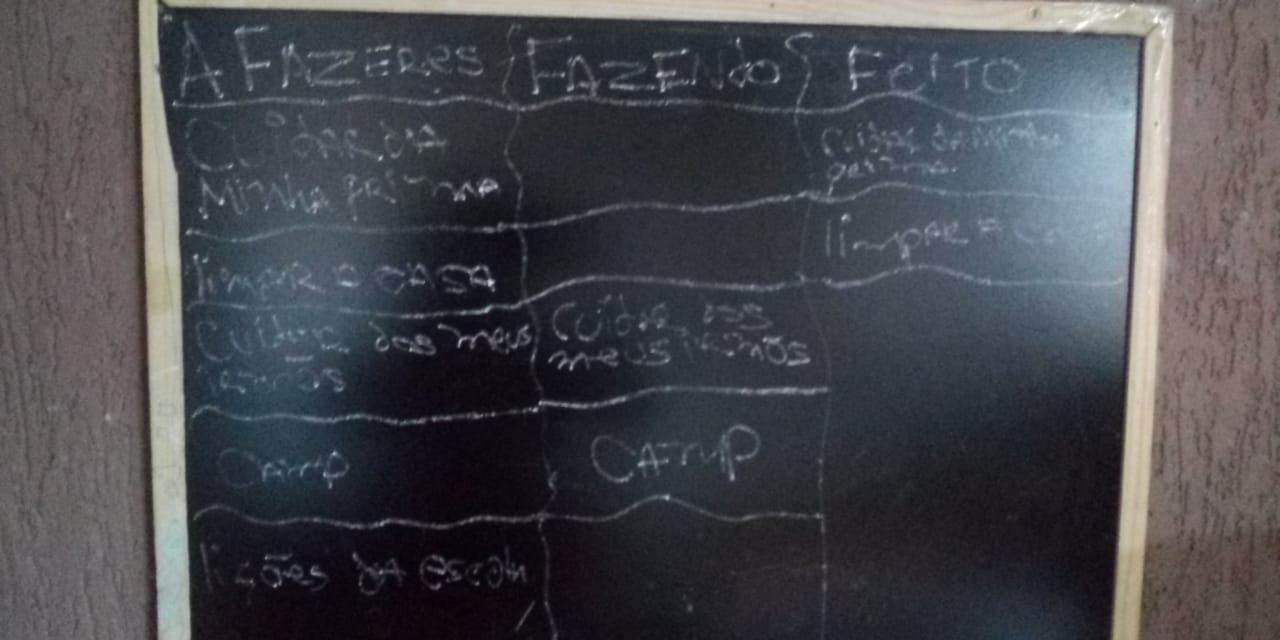 A FAZERES
FAZENdO
FEITO
CUIDAR DA
Minha prima
Cuidar da minha
prima.
limpar a CASA
limpAR A
Cuidar dos meus
irmãos
Cuidar dos
meus irmãos
CAmp
CAmp
lições dA escola